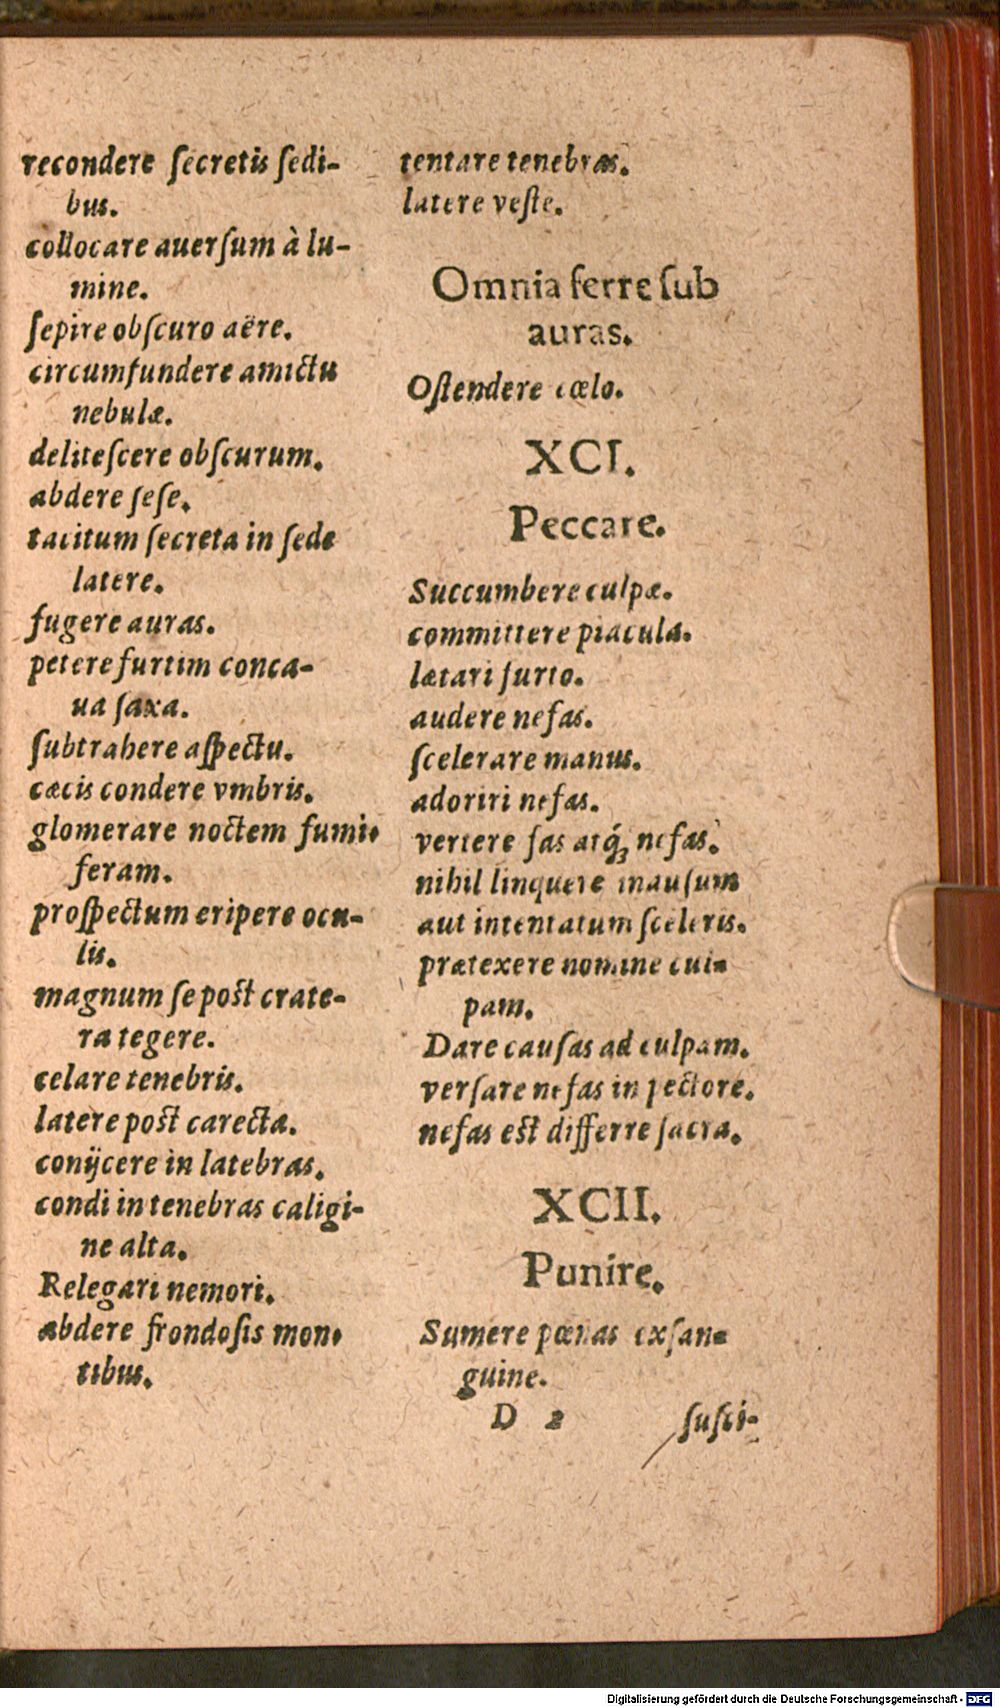 recondere ſecretis ſedi-
bus.
collocare auerſum à lu-
mine.
ſepire obſcuro aëre.
circumfundere amictu
nebulæ.
deliteſcere obſcurum.
abdere ſeſe.
tacitum ſecreta in ſede
latere.
fugere auras.
petere furtim conca-
ua ſaxa.
ſubtrahere aſpectu.
cæcis condere vmbris.
glomerare noctem fumi-
feram.
proſpectum eripere ocu-
lis.
magnum ſe poſt crate-
ra tegere.
celare tenebris.
latere poſt carecta.
conijcere in latebras.
condi in tenebras caligi-
ne alta.
Relegari nemori.
abdere frondoſis mon-
tibus.
tentare tenebras.
latere veſte.
Omnia ferre ſub
auras.
Oſtendere cœlo.
XCI.
Peccare.
Succumbere culpæ.
committere piacula.
lætari furto.
audere nefas.
ſcelerare manus.
adoriri nefas.
vertere fas atq́; nefas.
nihil linquere inauſum
aut intentatum ſceleris.
prætexere nomine cul-
pam.
Dare cauſas ad culpam.
verſare nefas in pectore.
nefas eſt differre ſacra.
XCII.
Punire.
Sumere pœnas ex ſan-
guine.
D 2 ſuſci-
Digitalisierung gefördert durch die Deutsche Forschungsgemeinschaft - DFG